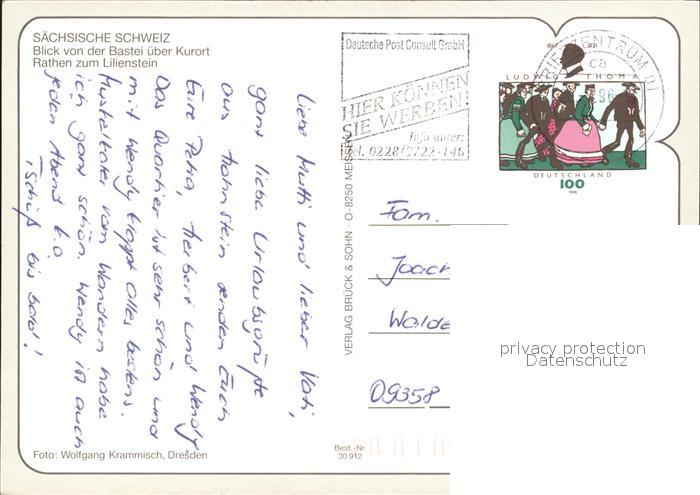 SÄCHSISCHE SCHWEIZ
Blick von der Bastei über Kurort
Rathen zum Lilienstein
Liebe Mutti und lieber Vati,
ganz liebe Urlaubsgrüße
aus Hohnstein senden Euch
Eure Petra, Herbert und Wendy
Das Quartier ist sehr schön und
mit Wendy klappt alles bestens.
Muskelkater vom Wandern habe
ich ganz schön. Wendy ist auch
jeden Abend k.o.
Tschüß bis bald!
Foto: Wolfgang Krammisch, Dresden
VERLAG BRÜCK & SOHN · O-8250 MEISSEN
Best.-Nr.
30 912
Deutsche Post Consult GmbH
HIER KÖNNEN
SIE WERBEN!
Info unter:
Tel. 0228/9722-146
BRIEFZENTRUM 01
ca
96
1867 1921
LUDWIG THOMA
DEUTSCHLAND
100
1996
Fam.
Joach
Walde
09358
privacy protection
Datenschutz